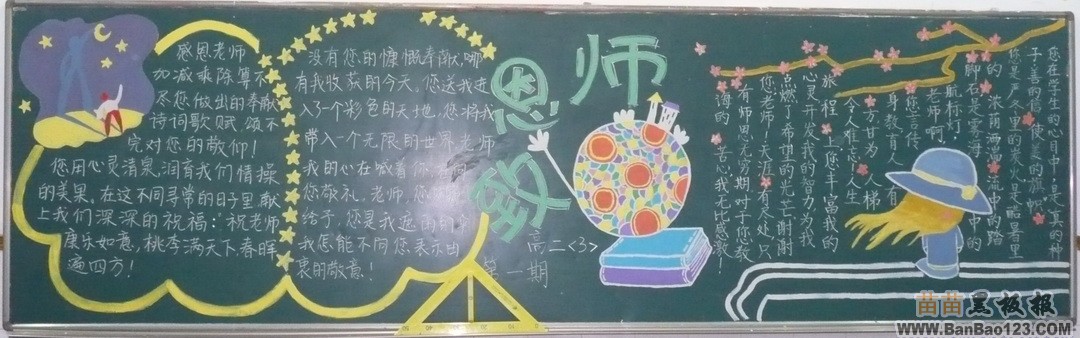 感恩老师
加减乘除算不
尽您做出的奉献
诗词歌赋颂不
完对您的敬仰！
您用心灵清泉，润育我们情操
的美果。在这不同寻常的日子里，献
上我们深深的祝福：祝老师
康乐如意，桃李满天下，春晖
遍四方！
没有您的慷慨奉献，哪
有我收获的今天。您送我进
入了个彩色的天地，您将我
带入一个无限的世界，老师
我的心在喊着您，
您敬礼。老师，您
给予，您灵我
我怎能不向您表示由
衷的敬意！
恩师
致
高二<3>
第一期
您在学生的心目中，是真的种
子，善的信使，美的旗帜。
您是严冬里的炭火，是酷暑里
的浓荫洒湍流中的踏
脚石，是雾海中的
航标灯。
老师啊，
您言传
身教育人有
方甘为人梯
令人难忘！人生
旅程上您丰富我的
心灵开发我的智力为我
点燃了希望的光芒谢谢
您，老师！天涯有尽处，只
有师恩无穷期对于您教
诲的苦心，我无比感激！
苗苗黑板报
www.BanBao123.com